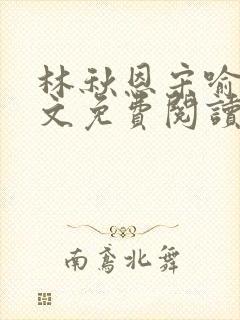 林秋恩宋喻
文免費閱讀
南鳶北舞